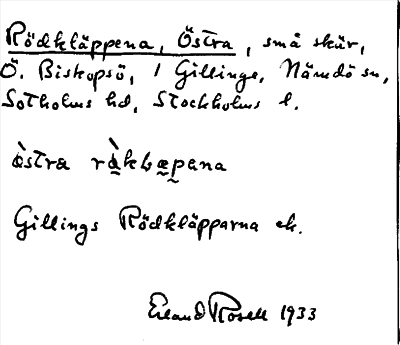 Rödkläppena, Östra, små skär,
Ö. Biskopsö, / Gillinge, Nämdö sn,
Sotholms hd, Stockholms l.
Gillings Rödkläpparna ek.
Erland Rosell 1933